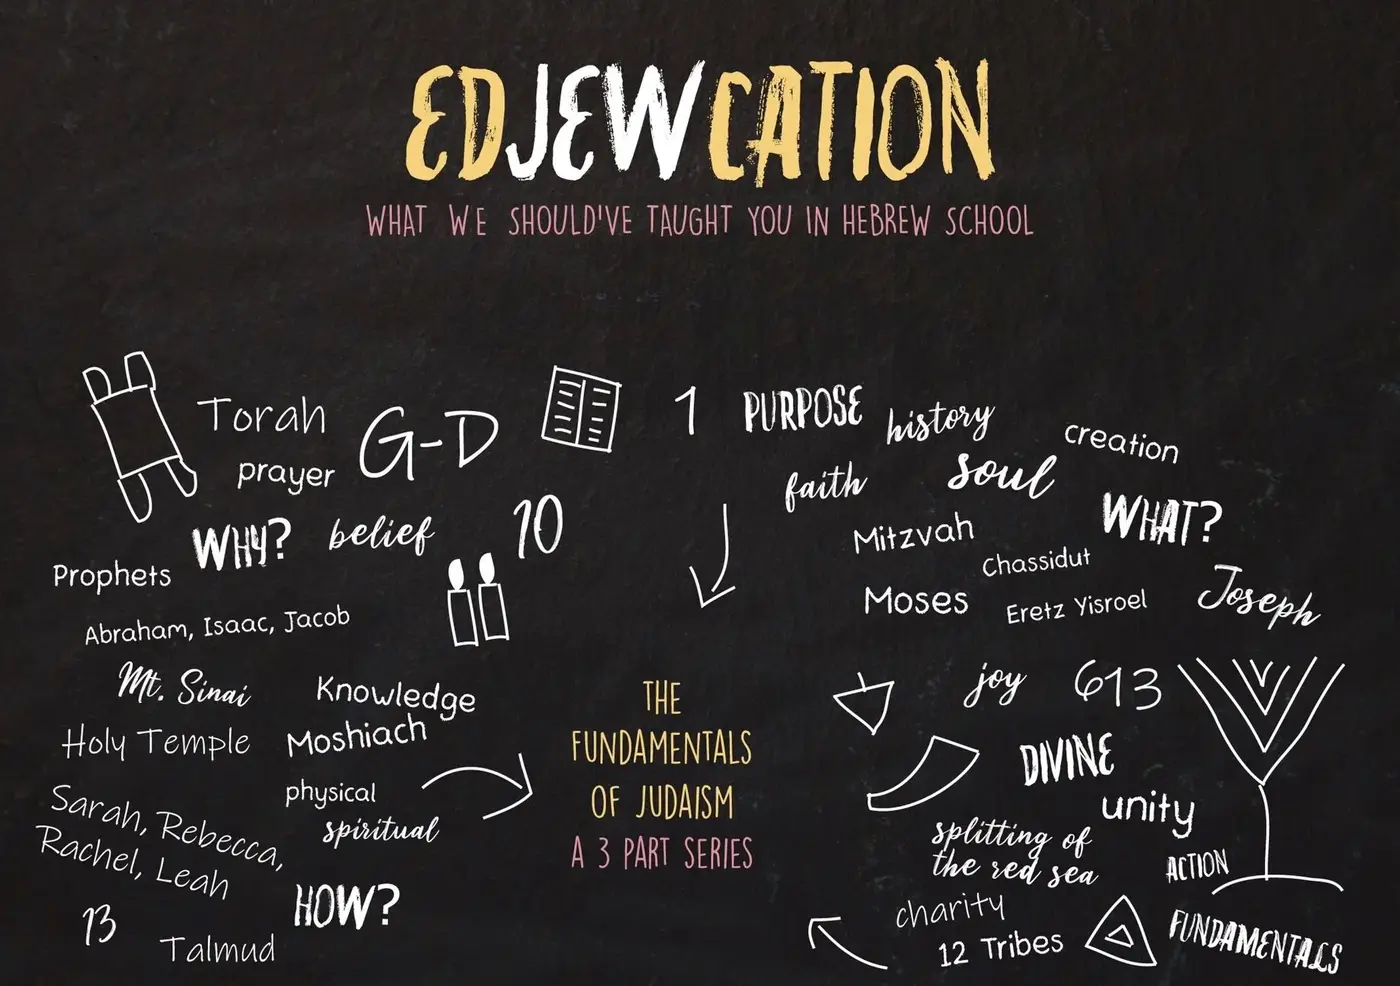 EDJEWCATION
WHAT WE SHOULD'VE TAUGHT YOU IN HEBREW SCHOOL
Torah
prayer
G-D
WHY?
belief
10
Prophets
Abraham, Isaac, Jacob
Mt. Sinai
Knowledge
Holy Temple
Moshiach
physical
spiritual
Sarah, Rebecca,
Rachel, Leah
HOW?
13
Talmud
1
PURPOSE
history
creation
faith
soul
WHAT?
Mitzvah
Chassidut
Moses
Eretz Yisroel
Joseph
THE
FUNDAMENTALS
OF JUDAISM
A 3 PART SERIES
joy
613
DIVINE
unity
splitting of
the red sea
ACTION
charity
12 Tribes
FUNDAMENTALS